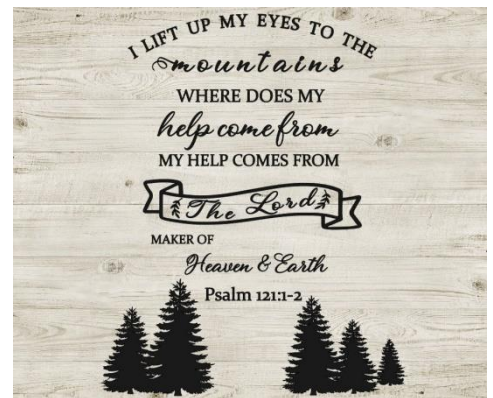 I LIFT UP MY EYES TO THE
mountains
WHERE DOES MY
help come from
MY HELP COMES FROM
The Lord
MAKER OF
Heaven & Earth
Psalm 121:1-2